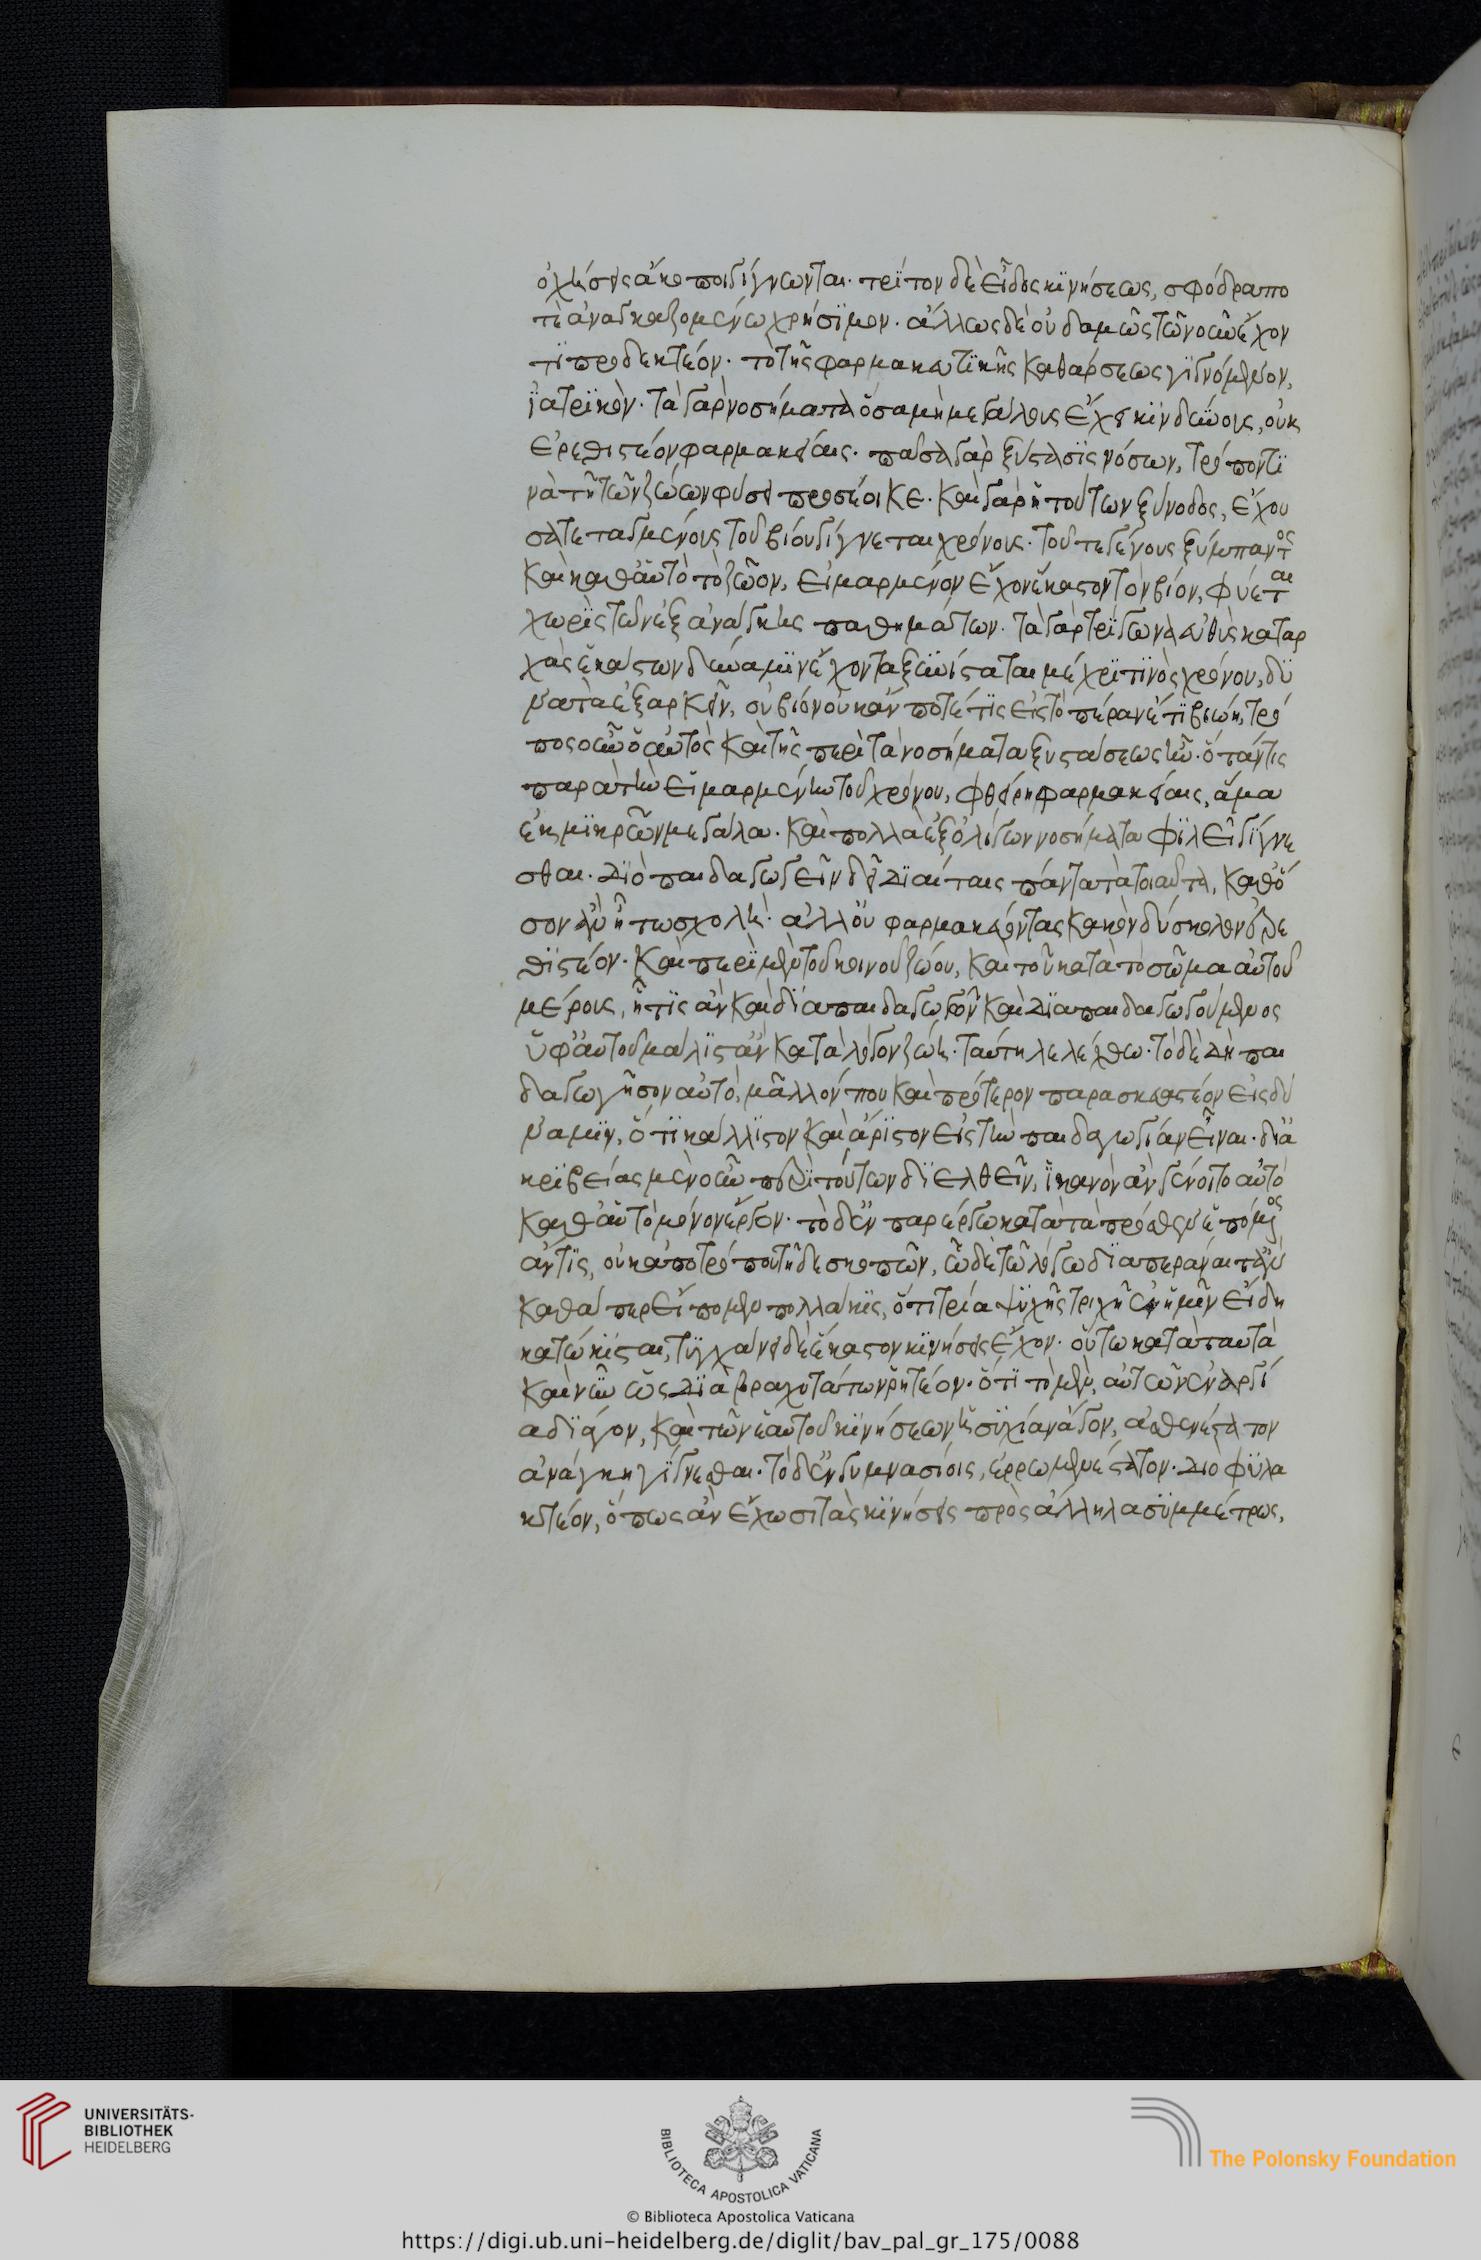 ὀχήσεις ἄκοποι γίγνωνται· τρίτον δὲ εἶδος κινήσεως, σφόδρα πο
τὲ ἀναγκαζομένω χρήσιμον· ἄλλως δὲ οὐδαμῶς τῶ νοῦν ἔχον
τι προδεκτέον· τὸ τῆς φαρμακευτικῆς καθάρσεως γιγνόμενον,
ἰατρικὸν· τὰ γὰρ νοσήματα ὅσα μὴ μεγάλους ἔχει κινδύνους, οὐκ
ἐρεθιστέον φαρμακείαις· πᾶσα γὰρ ξύστασις νόσων, τρόπον τι
νὰ τῆ τῶν ζώων φύσει προσέοικε· καὶ γὰρ ἡ τούτων ξύνοδος, ἔχου
σα τεταγμένους τοῦ βίου γίγνεται χρόνους· τοῦ τε γένους ξύμπαντος
καὶ καθ᾽ αὑτὸ τὸ ζῶον, εἱμαρμένον ἔχον ἕκαστον τὸν βίον, φύεται
χωρὶς τῶν ἐξ ἀνάγκης παθημάτων· τὰ γὰρ τρίγωνα εὐθὺς κατ᾽ ἀρ
χὰς ἑκάστου δύναμιν ἔχοντα ξυνίσταται μέχρι τινὸς χρόνου, δυ
νατὰ ἐξαρκεῖν, οὗ βίον οὐκ ἄν ποτέ τις εἰς τὸ πέραν ἔτι βιώη, τρό
πος οὖν ὁ αὐτὸς καὶ τῆς περὶ τὰ νοσήματα ξυστάσεως ἣν· ὅταν τις
παρὰ τὴν εἱμαρμένην τοῦ χρόνου, φθείρη φαρμακείαις, ἅμα
ἐκ μικρῶν μεγάλα· καὶ πολλὰ ἐξ ὀλίγων νοσήματα φιλεῖ γίγνε
σθαι· διὸ παιδαγωγεῖν δεῖ διαίταις πάντα τὰ τοιαῦτα, καθ᾽ ὅ
σον ἂν ἦ τω σχολή· ἀλλ᾽ οὐ φαρμακεύοντας κακὸν δύσκολον ἐρε
θιστέον· καὶ περὶ μὲν τοῦ κοινοῦ ζώου, καὶ τοῦ κατὰ τὸ σῶμα αὐτοῦ
μέρους, ἧ τις ἂν καὶ διαπαιδαγωγῶν καὶ διαπαιδαγωγούμενος
ὑφ᾽ αὑτοῦ μάλιστ᾽ ἂν κατὰ λόγον ζώη· ταύτη λελέχθω· τὸ δὲ δὴ παι
δαγωγῆσον αὐτό, μᾶλλόν που καὶ πρότερον παρασκευαστέον εἰς δύ
ναμιν, ὅτι κάλλιστον καὶ ἄριστον εἰς τὴν παιδαγωγίαν εἶναι· δι᾽ ἀ
κριβείας μὲν οὖν περὶ τούτων διελθεῖν, ἱκανὸν ἂν γένοιτο αὐτὸ
καθ᾽ αὑτὸ μόνον ἔργον· τὸ δ᾽ ἐν παρέργω κατὰ τὰ πρόσθεν ἑπόμενος
ἄν τις, οὐκ ἀπὸ τρόπου τῆδε σκοπῶν, ὧδε τῶ λόγω διαπεράναιτ᾽ ἄν
καθάπερ εἴπομεν πολλάκις, ὅτι τρία ψυχῆς τριχῆ ἐν ἡμῖν εἴδη
κατώκισται, τυγχάνει δὲ ἕκαστον κινήσεις ἔχον· οὕτω κατὰ ταυτὰ
καὶ νῦν ὡς διὰ βραχυτάτων ῥητέον· ὅτι τὸ μὲν, αὐτῶν ἐν ἀργί
α διάγον, καὶ τῶν ἑαυτοῦ κινήσεων ἡσυχίαν ἄγον, ἀσθενέστατον
ἀνάγκη γίγνεσθαι· τὸ δ᾽ ἐν γυμνασίοις, ἐρρωμενέστατον· διὸ φυλα
κτέον, ὅπως ἂν ἔχωσι τὰς κινήσεις πρὸς ἄλληλα συμμέτρως,
UNIVERSITÄTS-
BIBLIOTHEK
HEIDELBERG
BIBLIOTECA APOSTOLICA VATICANA
The Polonsky Foundation
© Biblioteca Apostolica Vaticana
https://digi.ub.uni-heidelberg.de/diglit/bav_pal_gr_175/0088